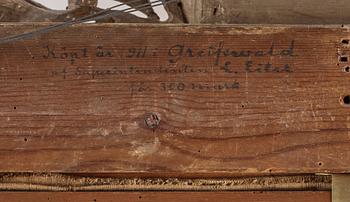 Köpt år 1911 i Greifswald
af Superintendenten L. Eilst
för 300 mark